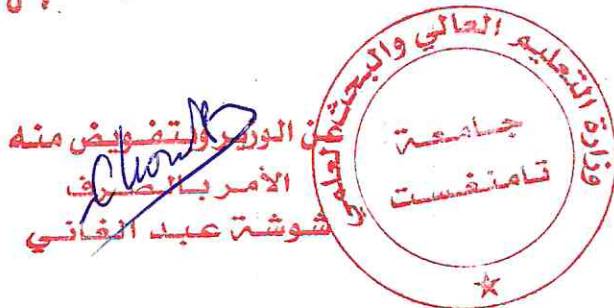 وزارة التعليم العالي والبحث العلمي
جامعة
تامنغست
عن الوزير وبتفويض منه
الأمر بالصرف
شوشة عبد الغاني